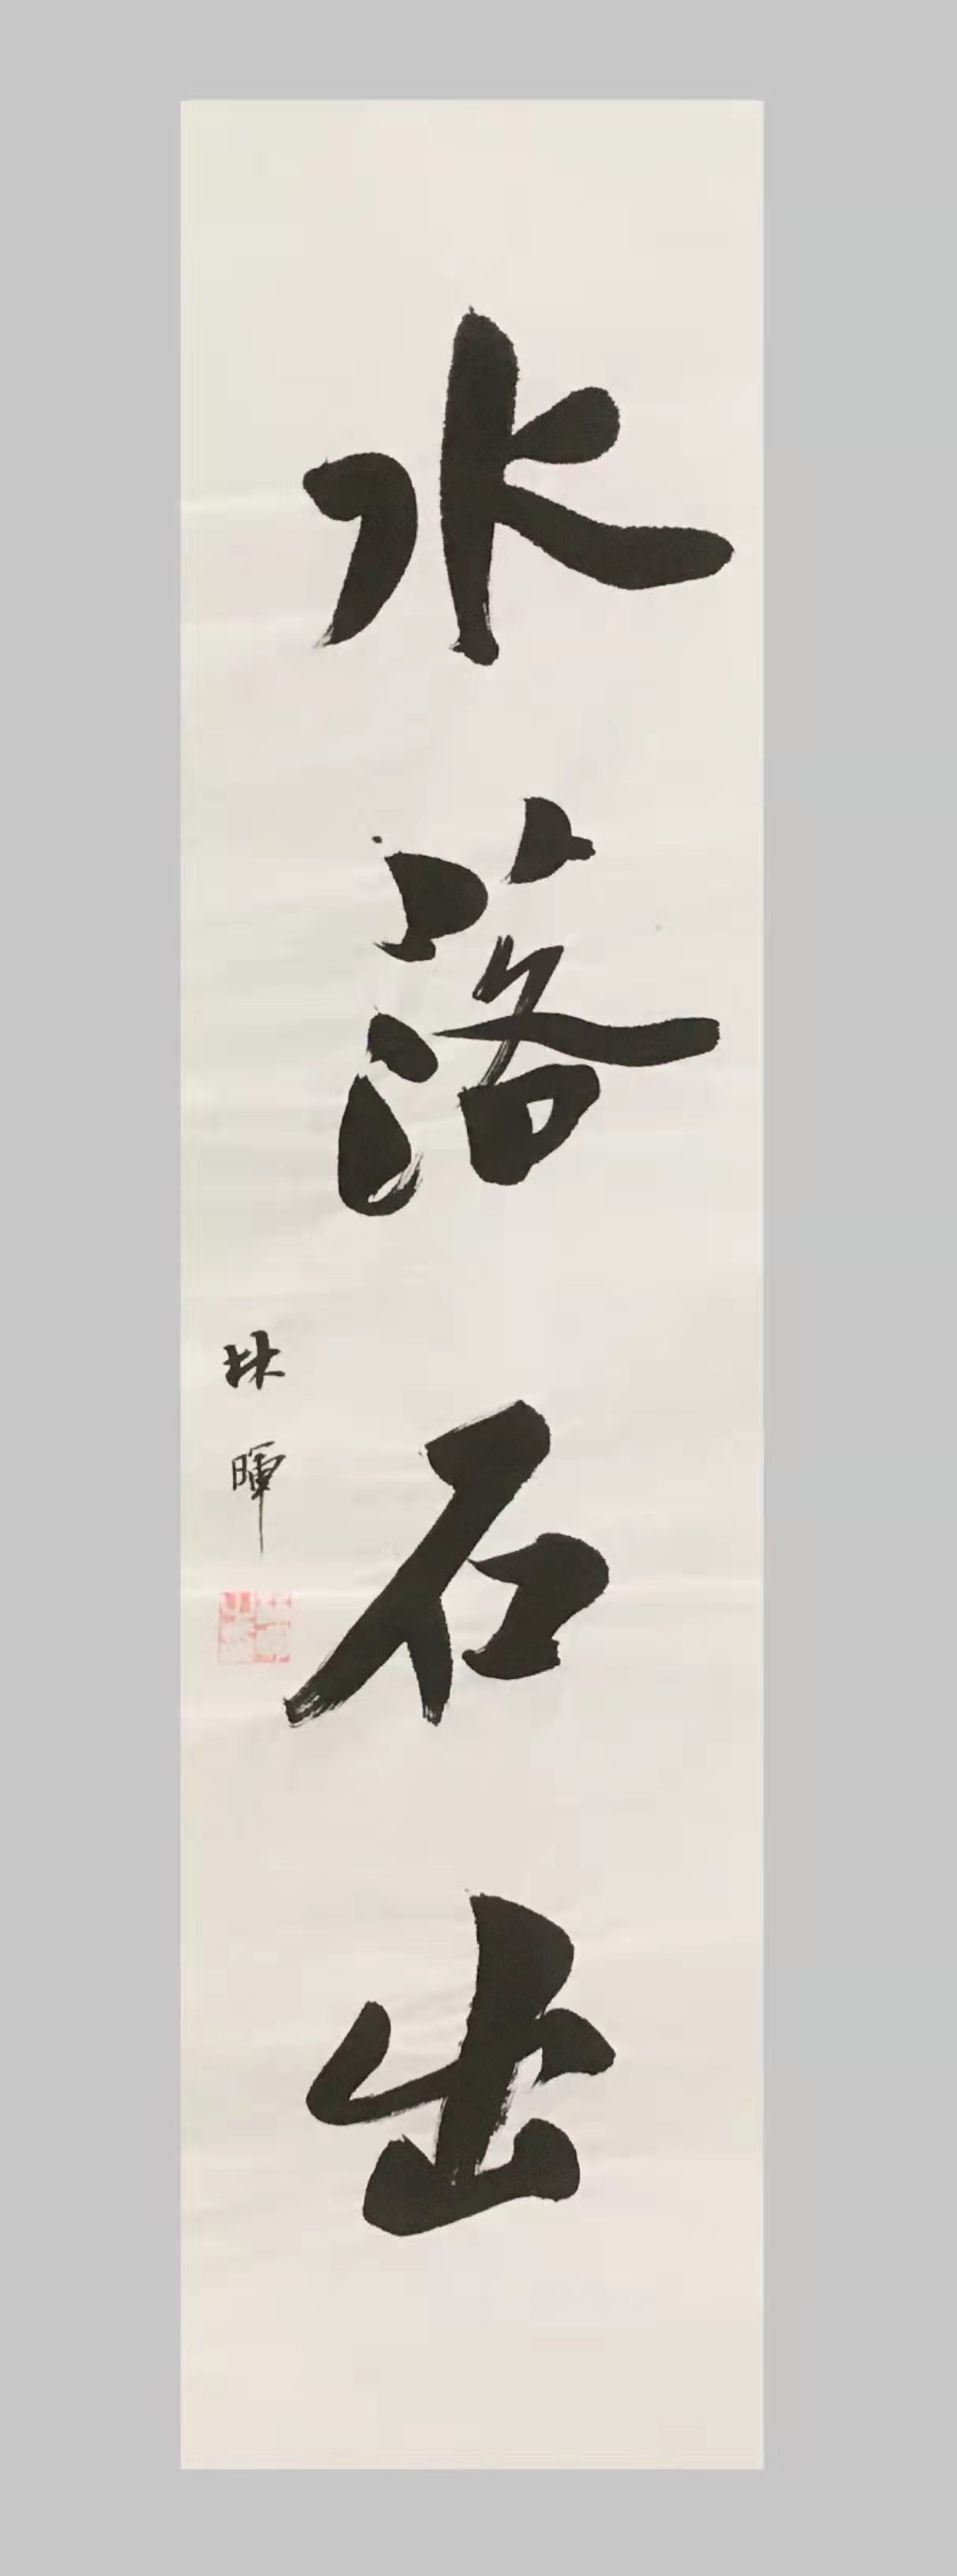 水落石出
林暉